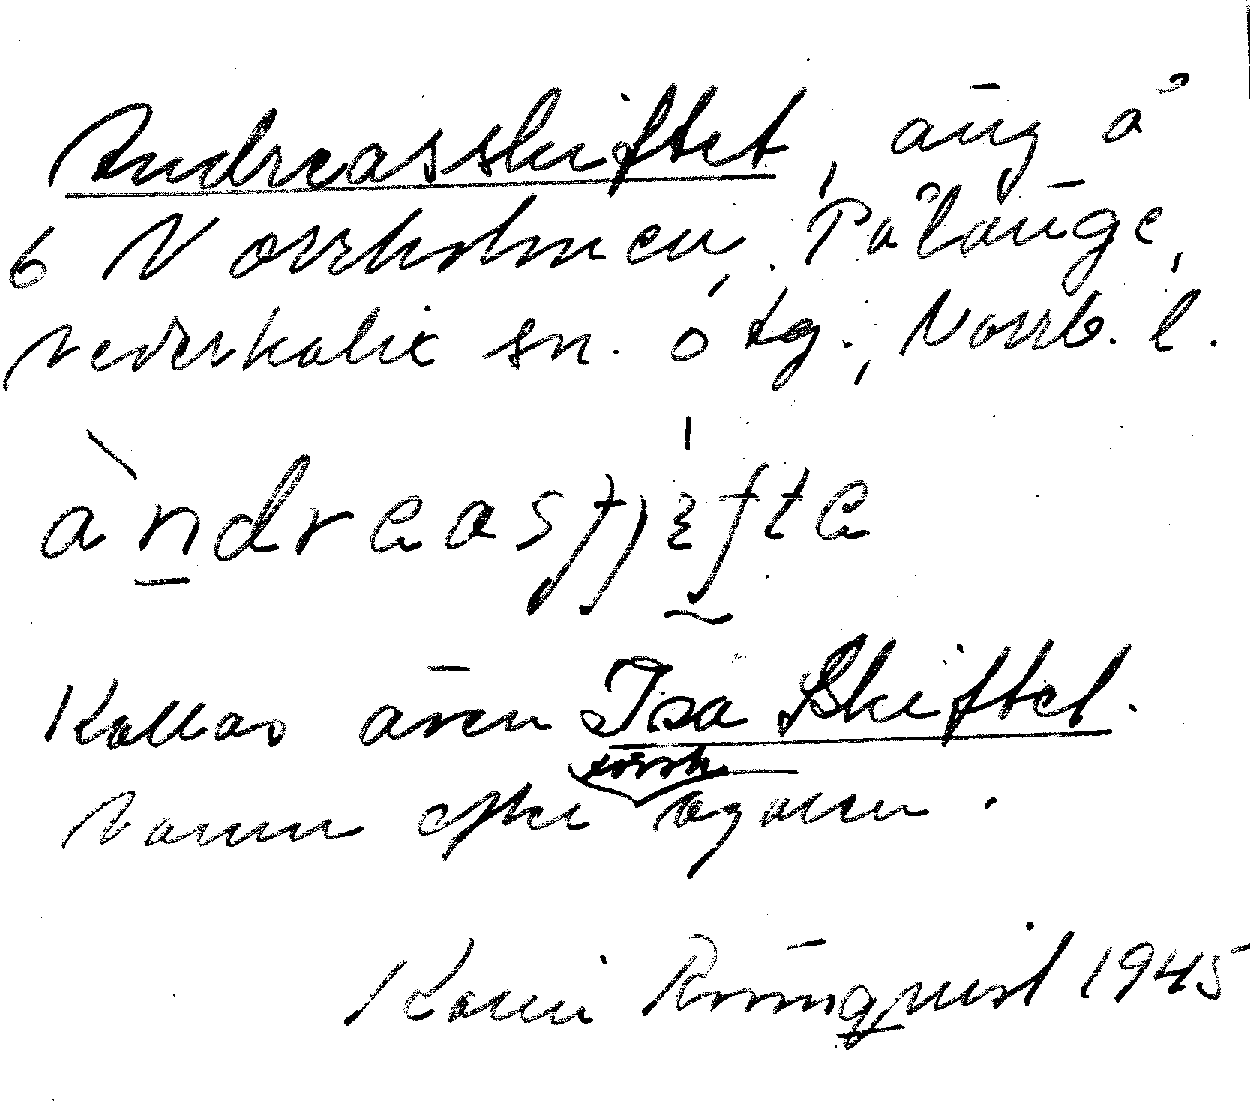 Andreasskiftet, äng å
6 Norrholmen, Pålänge,
Nederkalix sn. ö tg., Norrb. l.
àndreasʃjɛfte
Kallas även Isa Skiftet.
Namn efter ägaren.
Karin Rönnqvist 1945